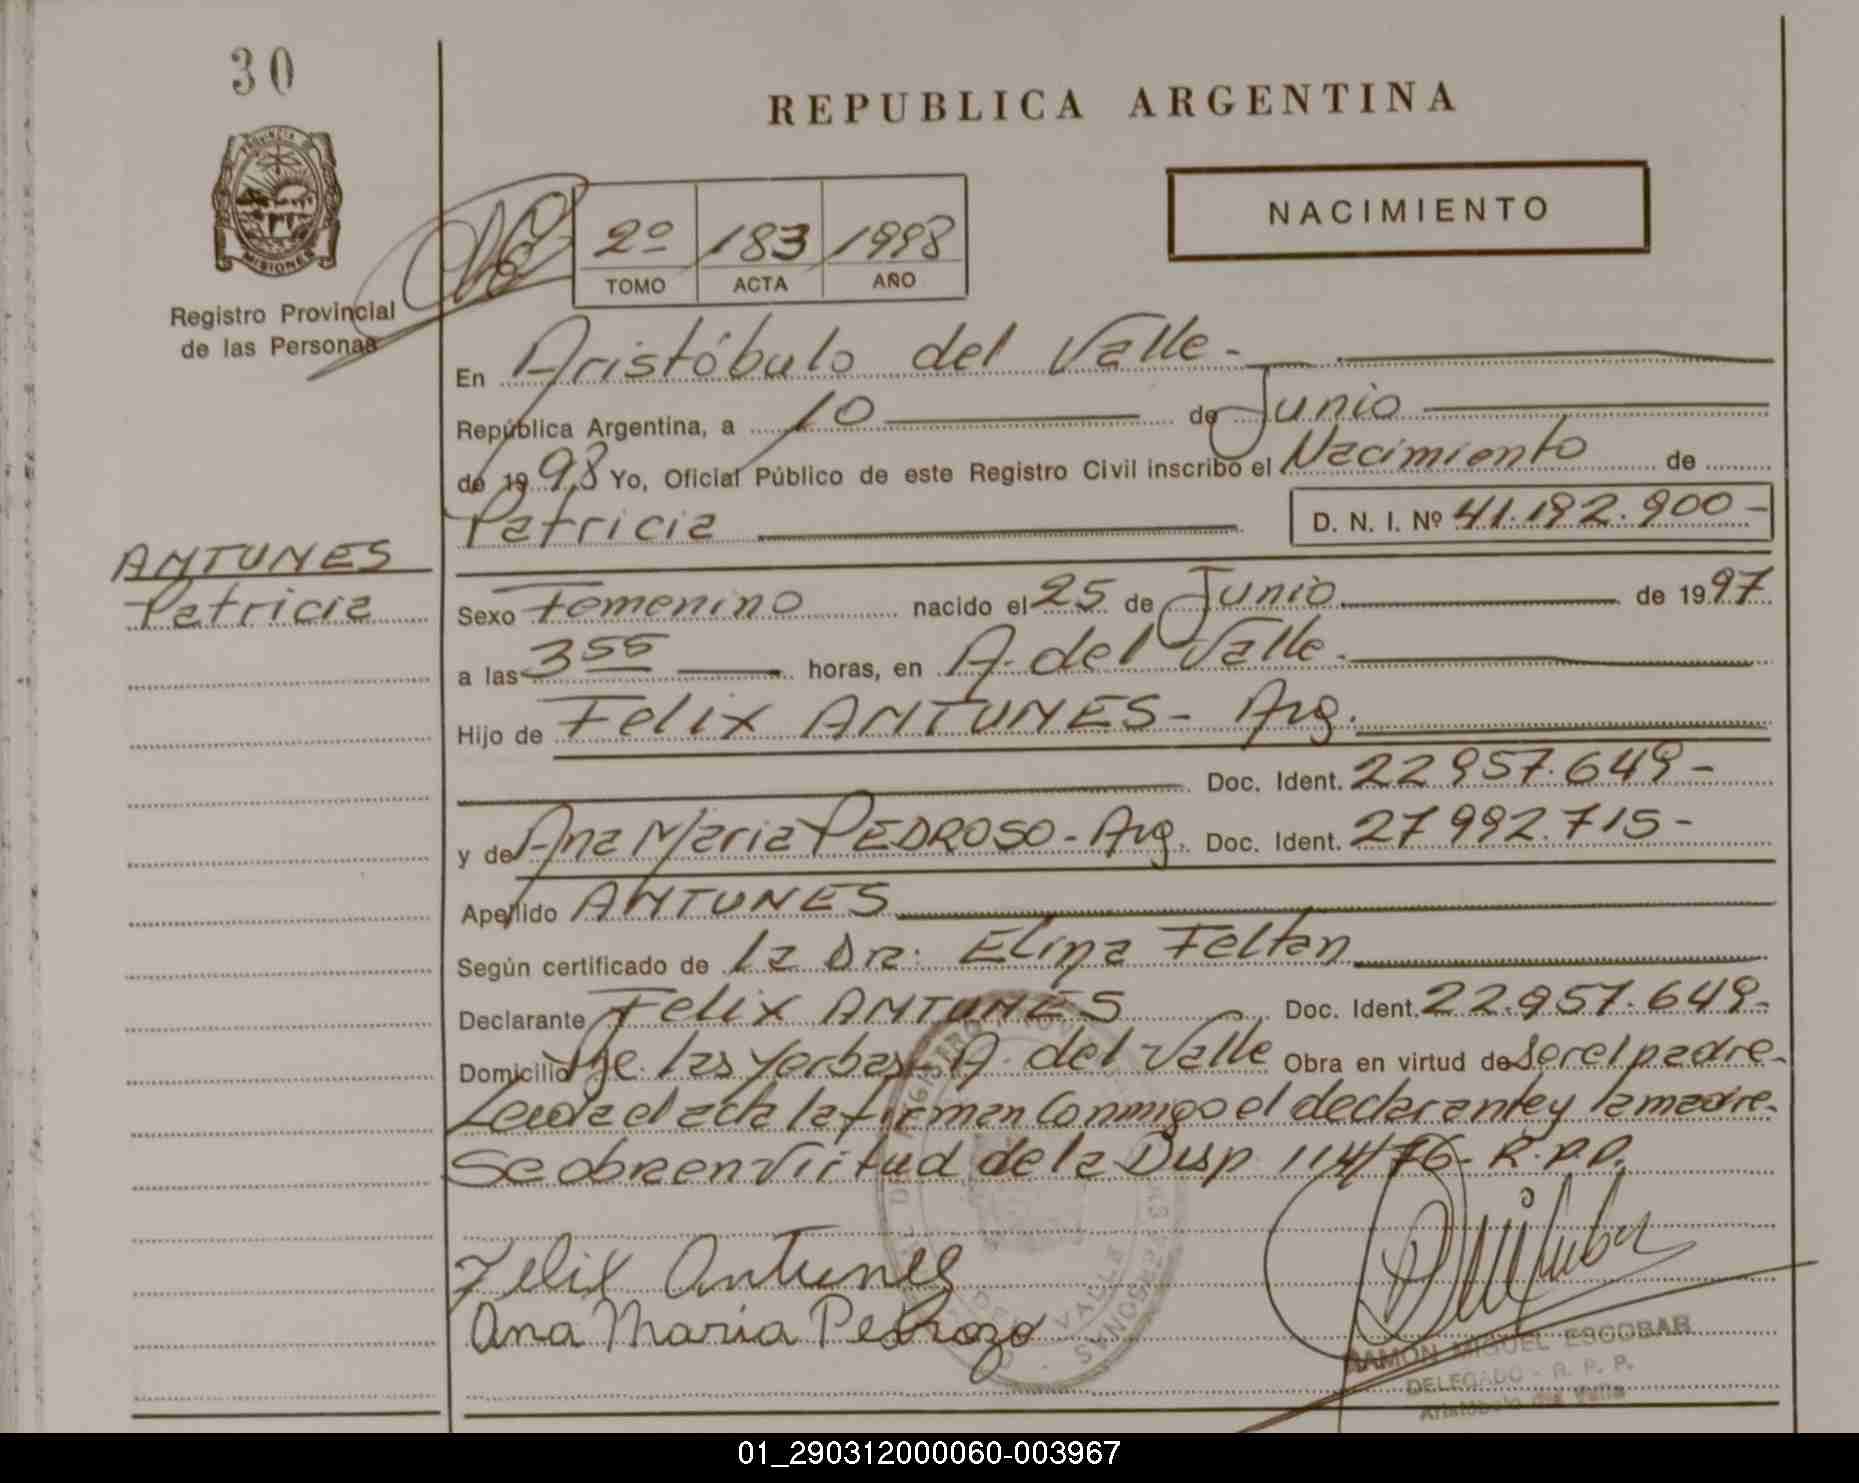 30
REPUBLICA ARGENTINA
PROVINCIA DE
MISIONES
Registro Provincial
de las Personas
2º 183 1998
TOMO ACTA AÑO
NACIMIENTO
En Aristóbulo del Valle.-
República Argentina, a 10 de Junio
de 1998 Yo, Oficial Público de este Registro Civil inscribo el Nacimiento de
Patricia D. N. I. Nº 41.192.900-
ANTUNES
Patricia
Sexo Femenino nacido el 25 de Junio de 1997
a las 3 55 horas, en A. del Valle.
Hijo de Felix ANTUNES - Arg.
Doc. Ident. 22 957.649-
y de Ana Maria PEDROSO - Arg. Doc. Ident. 27 992.715-
Apellido ANTUNES
Según certificado de la Dra. Feltan
Declarante Felix ANTUNES Doc. Ident. 22.957.649-
Domicilio las Yerbas A. del Valle Obra en virtud de ser el padre-
Leida el acta la firman Conmigo el declarante y la madre.
Se obra en virtud de la Disp 114/76- R.P.P.
Felix Antunes
Ana Maria Pedrozo
RAMON MIGUEL ESCOBAR
DELEGADO - R. P. P.
Aristóbulo del Valle
01_290312000060-003967